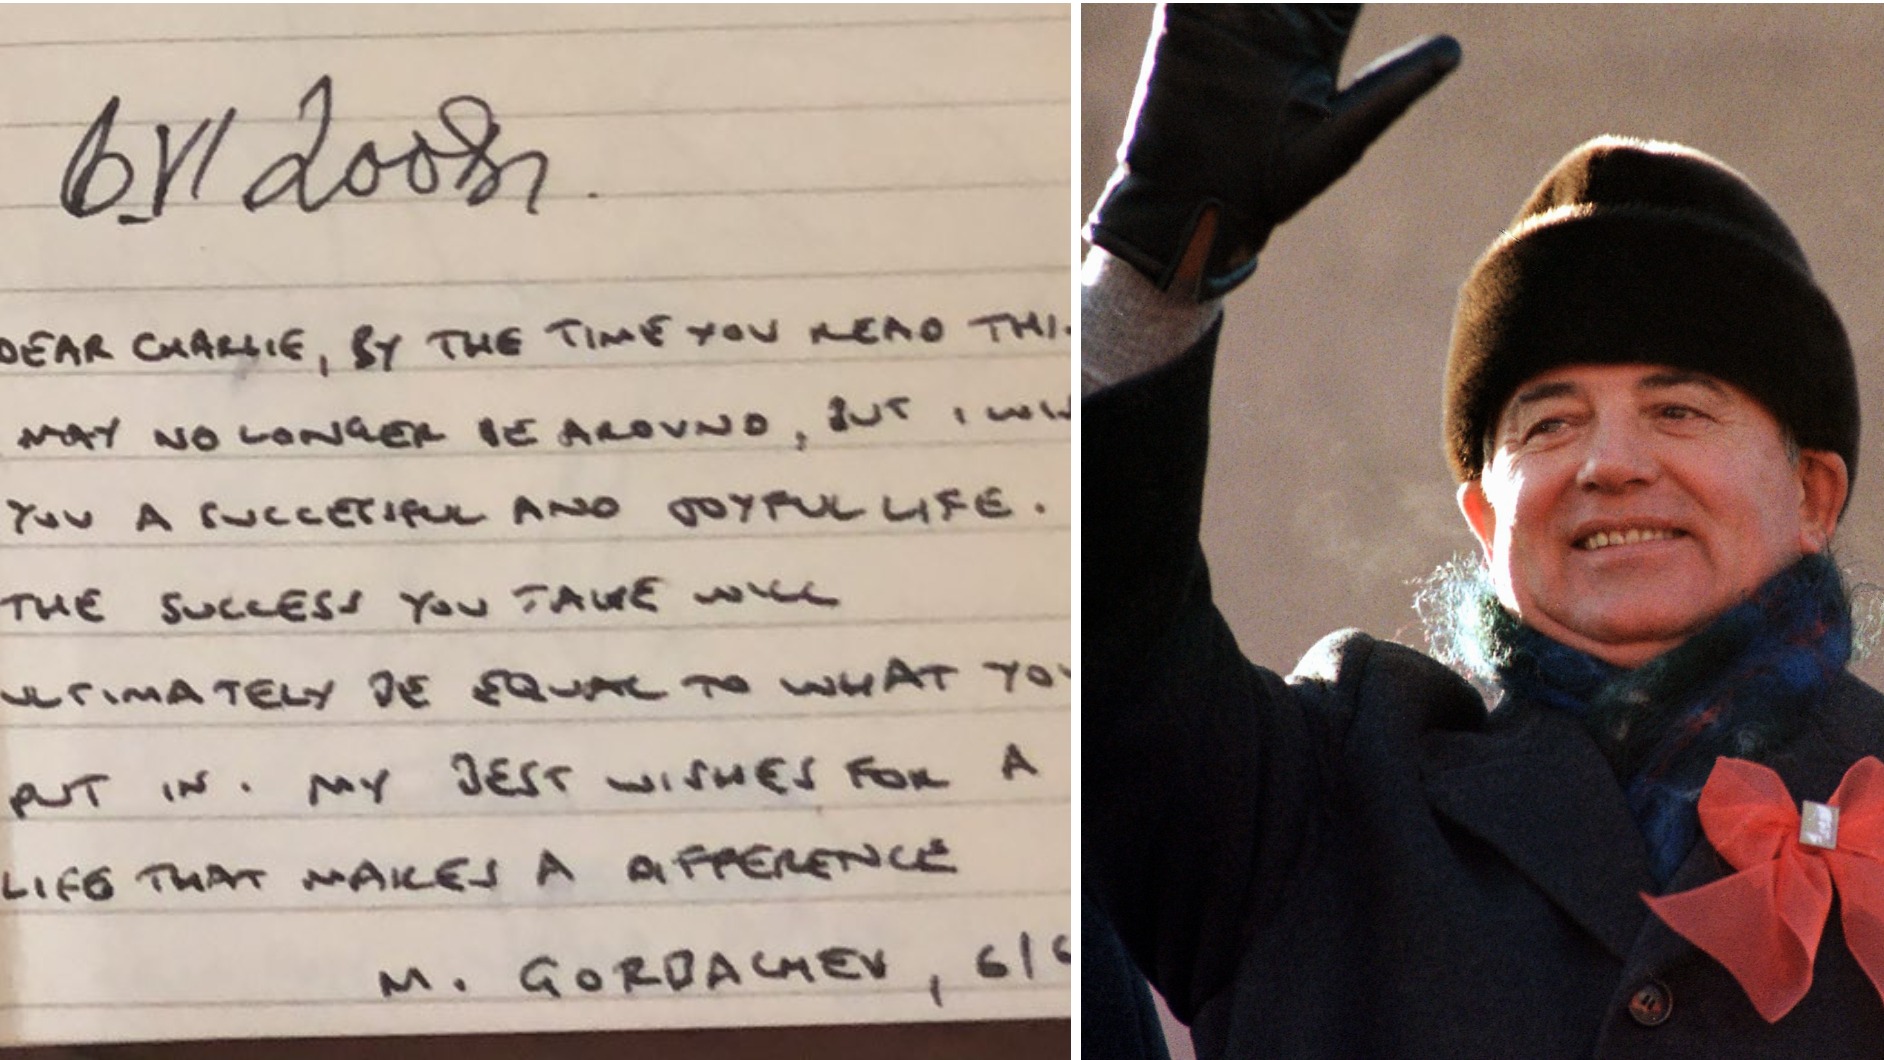 6.VI 2008г.
DEAR CHARLIE, BY THE TIME YOU READ THI
MAY NO LONGER BE AROUND, BUT I WI
YOU A SUCCESSFUL AND JOYFUL LIFE.
THE SUCCESS YOU TAKE WILL
ULTIMATELY BE EQUAL TO WHAT YOU
PUT IN. MY BEST WISHES FOR A
LIFE THAT MAKES A DIFFERENCE
M. GORBACHEV, 6/6